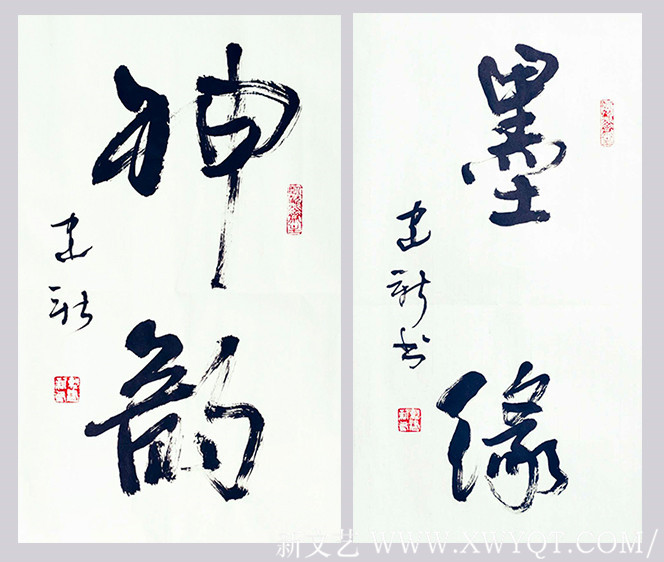 神韵
建新
墨缘
建新书
新文艺 WWW.XWYQT.COM/